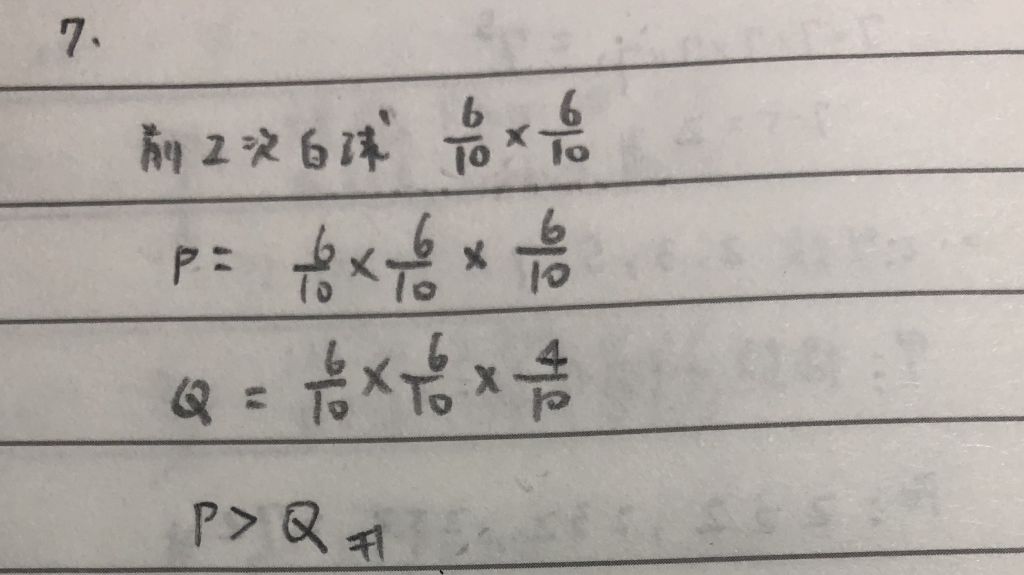 7.
前2次白球 6/10 × 6/10
P = 6/10 × 6/10 × 6/10
Q = 6/10 × 6/10 × 4/10
P > Q